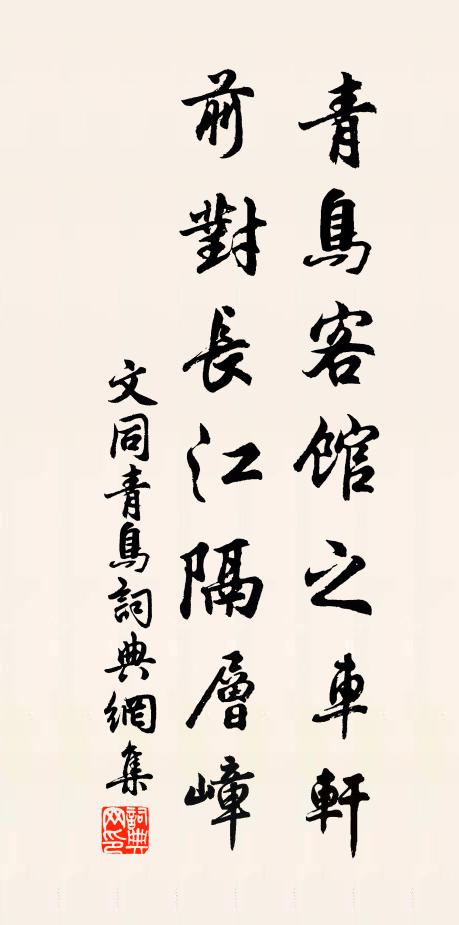 青鳥客館之車軒
前對長江隔層嶂
文同青鳥詞典網集
詞典网印